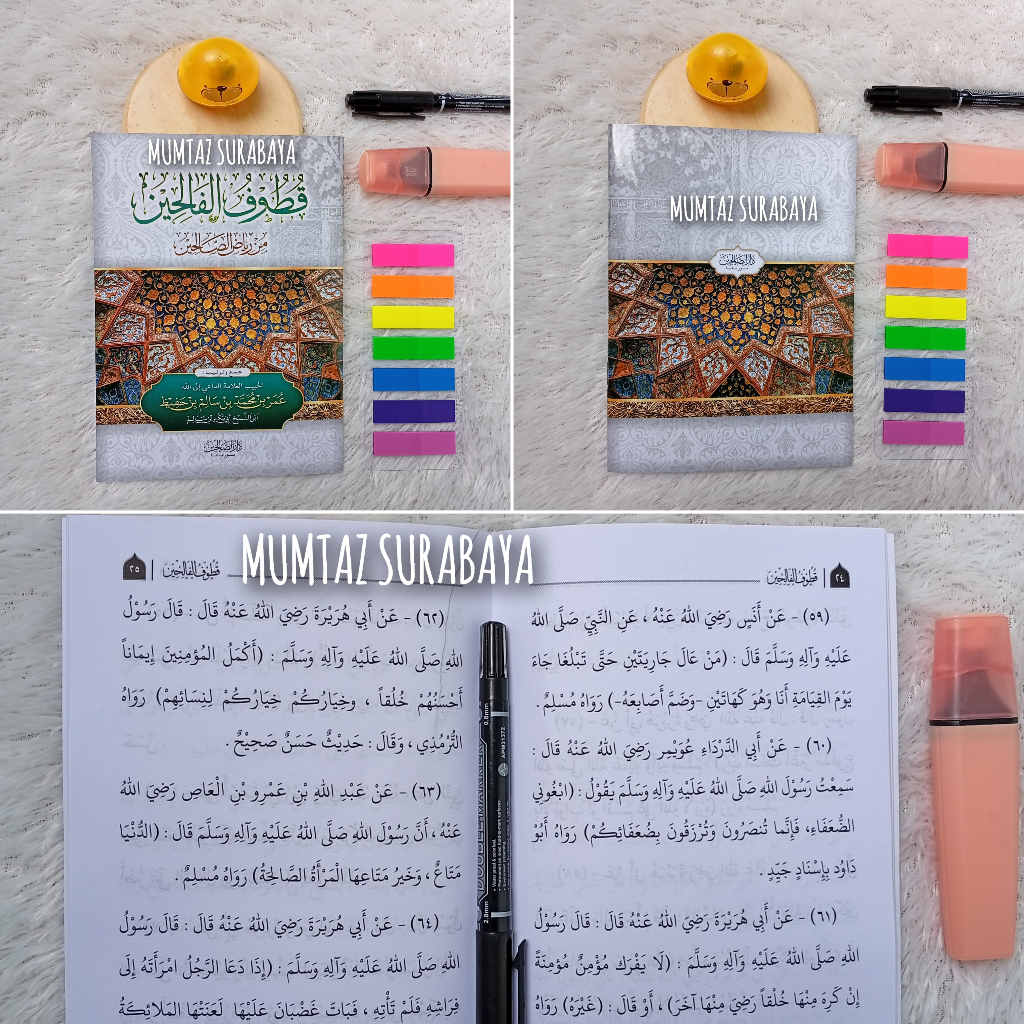 MUMTAZ SURABAYA
قُطُوْفُ الفَالِحِيْن
مِنْ رِيَاضِ الصَّالِحِيْن
جمع وترتيب :
الحبيب العلامة الداعي إلى الله
عُمَر بن مُحَمَّد بن سَالِم بن حَفِيظ
دار الصالحين
MUMTAZ SURABAYA
دار الصالحين
MUMTAZ SURABAYA
٢٤ | قُطُوْفُ الفَالِحِيْن
(٥٩) - عَنْ أَنَسٍ رَضِيَ اللهُ عَنْهُ ، عَنِ النَّبِيِّ صَلَّى اللهُ
عَلَيْهِ وَآلِهِ وَسَلَّمَ قَالَ : (مَنْ عَالَ جَارِيَتَيْنِ حَتَّى تَبْلُغَا جَاءَ
يَوْمَ القِيَامَةِ أَنَا وَهُوَ كَهَاتَيْنِ -وَضَمَّ أَصَابِعَهُ-) رَوَاهُ مُسْلِمٌ .
(٦٠) - عَنْ أَبِي الدَّرْدَاءِ عُوَيْمِرٍ رَضِيَ اللهُ عَنْهُ قَالَ :
سَمِعْتُ رَسُوْلَ اللهِ صَلَّى اللهُ عَلَيْهِ وَآلِهِ وَسَلَّمَ يَقُوْلُ : (ابْغُونِي
الضُّعَفَاءِ، فَإِنَّمَا تُنصَرُونَ وَتُرْزَقُونَ بِضُعَفَائِكُمْ) رَوَاهُ أَبُوْ
دَاوُد بِإِسْنَادٍ جَيِّدٍ .
(٦١) - عَنْ أَبِي هُرَيْرَةَ رَضِيَ اللهُ عَنْهُ قَالَ : قَالَ رَسُوْلُ
اللهِ صَلَّى اللهُ عَلَيْهِ وَآلِهِ وَسَلَّمَ : (لَا يَفْرَكْ مُؤْمِنٌ مُؤمِنَةً
إِنْ كَرِهَ مِنْهَا خُلُقاً رَضِيَ مِنْهَا آخَرَ) ، أَوْ قَالَ : (غَيْرَهُ) رَوَاهُ
قُطُوْفُ الفَالِحِيْن | ٢٥
(٦٢) - عَنْ أَبِي هُرَيْرَةَ رَضِيَ اللهُ عَنْهُ قَالَ : قَالَ رَسُوْلُ
اللهِ صَلَّى اللهُ عَلَيْهِ وَآلِهِ وَسَلَّمَ : (أَكْمَلُ المُؤمِنِينَ إِيمَاناً
أَحْسَنُهُمْ خُلُقاً ، وخِيَارُكُمْ خِيَارُكُمْ لِنِسَائِهِمْ) رَوَاهُ
التُّرْمُذِي ، وَقَالَ : حَدِيْثٌ حَسَنٌ صَحِيْحٌ .
(٦٣) - عَنْ عَبْدِ اللهِ بْنِ عَمْرِو بْنِ الْعَاصِ رَضِيَ اللهُ
عَنْهُ ، أَنَّ رَسُوْلَ اللهِ صَلَّى اللهُ عَلَيْهِ وَآلِهِ وَسَلَّمَ قَالَ : (الدُّنْيَا
مَتَاعٌ ، وَخَيْرُ مَتَاعِهَا الْمَرْأَةُ الصَّالِحَةُ) رَوَاهُ مُسْلِمٌ .
(٦٤) - عَنْ أَبِي هُرَيْرَةَ رَضِيَ اللهُ عَنْهُ قَالَ : قَالَ رَسُوْلُ
اللهِ صَلَّى اللهُ عَلَيْهِ وَآلِهِ وَسَلَّمَ : (إِذَا دَعَا الرَّجُلُ امْرَأَتَهُ إِلَى
فِرَاشِهِ فَلَمْ تَأْتِهِ ، فَبَاتَ غَضْبَانَ عَلَيْهَا لَعَنَتْهَا المَلائِكَةُ
0.8mm
2.8mm